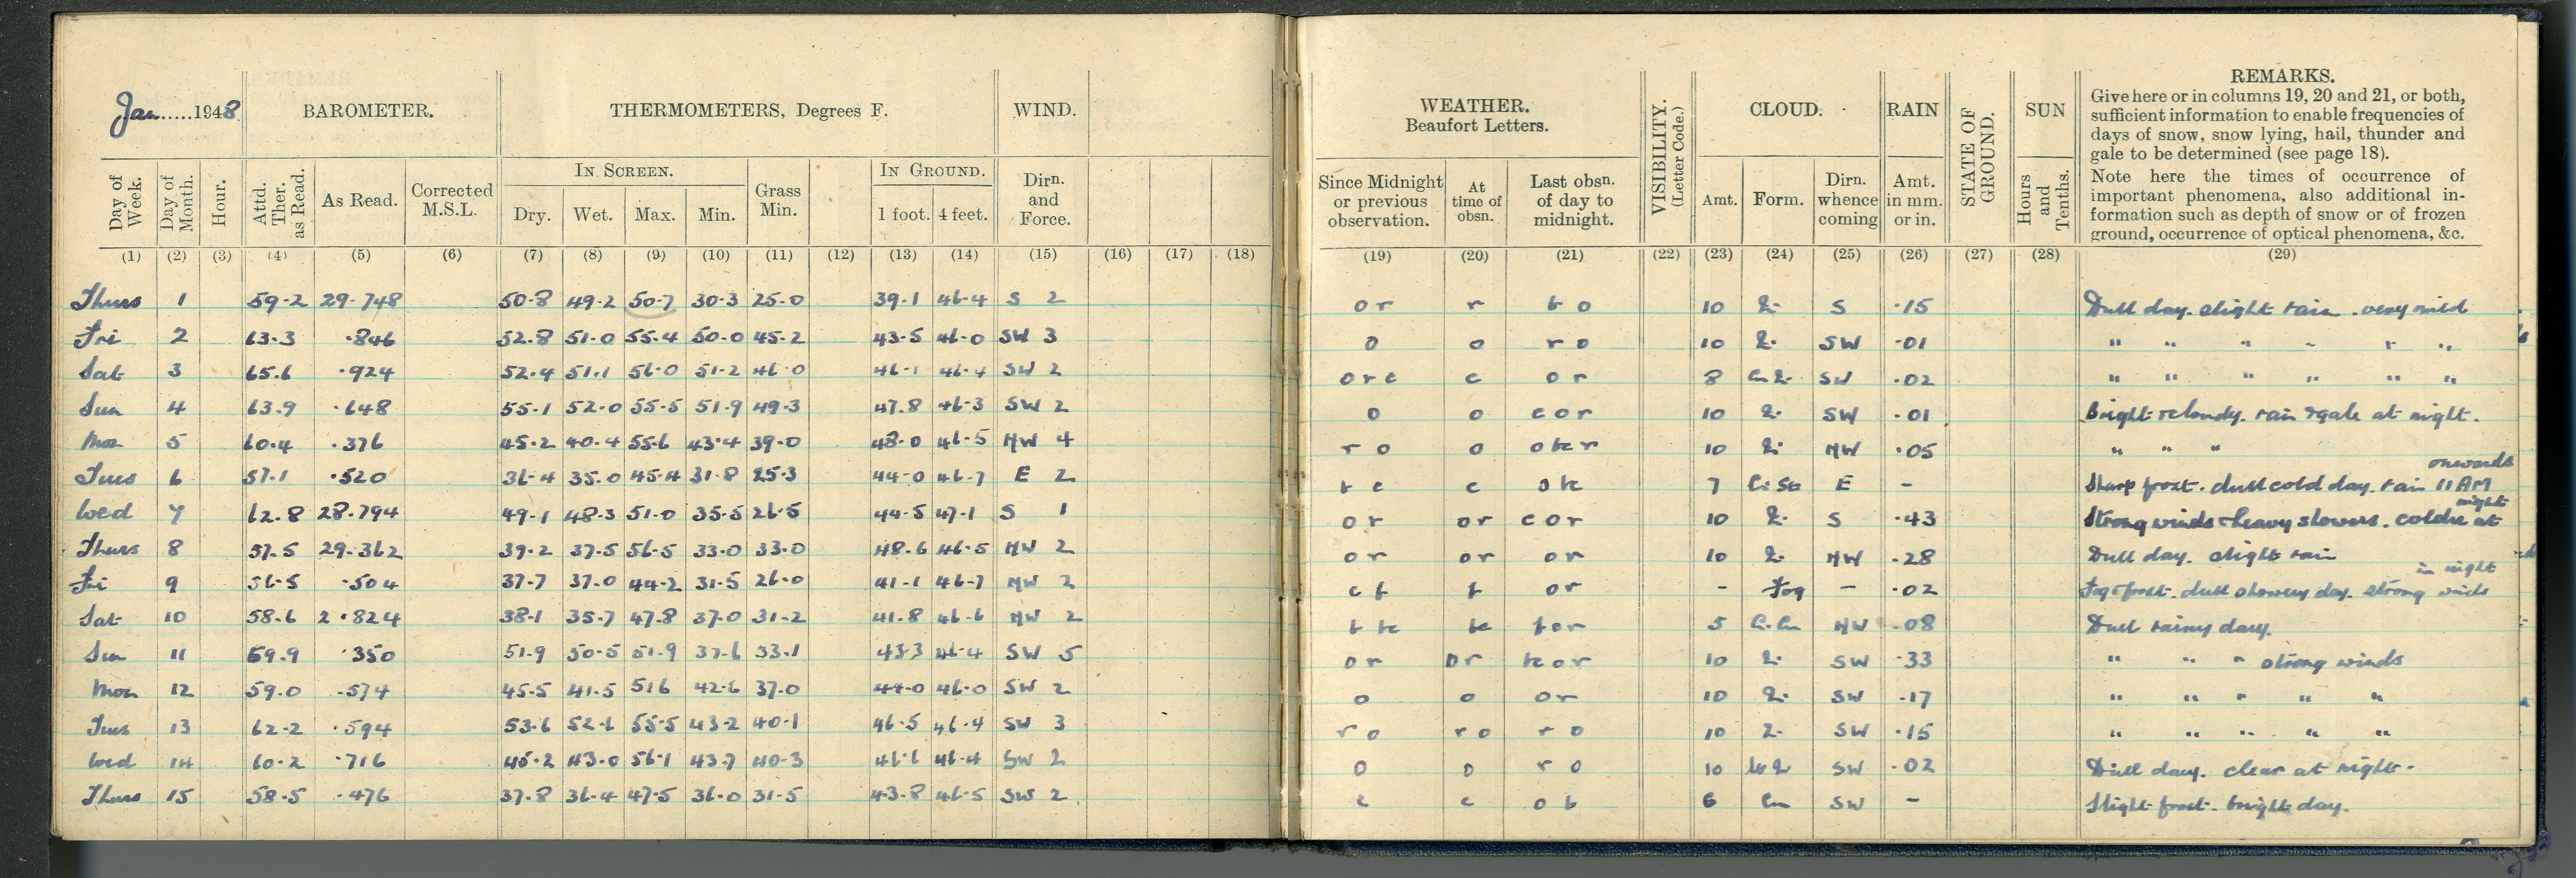 Jan.....1948 BAROMETER. THERMOMETERS, Degrees F. WIND. WEATHER. Beaufort Letters. VISIBILITY. (Letter Code.) CLOUD. RAIN STATE OF GROUND. SUN REMARKS.
Give here or in columns 19, 20 and 21, or both,
sufficient information to enable frequencies of
days of snow, snow lying, hail, thunder and
gale to be determined (see page 18).
Note here the times of occurrence of
important phenomena, also additional in-
formation such as depth of snow or of frozen
ground, occurrence of optical phenomena, &c.
IN SCREEN. IN GROUND.
Day of Week. Day of Month. Hour. Attd. Ther. as Read. As Read. Corrected M.S.L. Dry. Wet. Max. Min. Grass Min. 1 foot. 4 feet. Dirn. and Force. Since Midnight or previous observation. At time of obsn. Last obsn. of day to midnight. Amt. Form. Dirn. whence coming Amt. in mm. or in. Hours and Tenths.
(1) (2) (3) (4) (5) (6) (7) (8) (9) (10) (11) (12) (13) (14) (15) (16) (17) (18) (19) (20) (21) (22) (23) (24) (25) (26) (27) (28) (29)
Thurs 1 59.2 29.748 50.8 49.2 50.7 30.3 25.0 39.1 46.4 S 2 or r 10 S .15 Dull day. slight rain. very mild
Fri 2 63.3 .846 52.8 51.0 55.4 50.0 45.2 43.5 46.0 SW 3 o o ro 10 SW .01 " " " " " "
Sat 3 65.6 .924 52.4 51.1 56.0 51.2 46.0 46.1 46.4 SW 2 orc c or 8 SW .02 " " " " " "
Sun 4 63.9 .648 55.1 52.0 55.5 51.9 49.3 47.8 46.3 SW 2 o o cor 10 SW .01 Bright & cloudy. rain & gale at night.
Mon 5 60.4 .376 45.2 40.4 55.6 43.4 39.0 48.0 46.5 NW 4 ro o 10 NW .05 " " "
Tues 6 57.1 .520 36.4 35.0 45.4 31.8 25.3 44.0 46.7 E 2 c 7 Ci St E - Sharp frost. dull cold day. rain 11 AM onwards
Wed 7 62.8 28.794 49.1 48.3 51.0 35.5 26.5 44.5 47.1 S 1 or or cor 10 S .43 Strong winds & heavy showers. colder at night
Thurs 8 57.5 29.362 39.2 37.5 56.5 33.0 33.0 48.6 46.5 NW 2 or or or 10 NW .28 Dull day. slight rain
Fri 9 56.5 .504 37.7 37.0 44.2 31.5 26.0 41.1 46.7 NW 2 cf f or - Fog - .02 Fog & frost. dull showery day. strong winds in night
Sat 10 58.6 2.824 38.1 35.7 47.8 37.0 31.2 41.8 46.6 NW 2 5 NW .08 Dull rainy day.
Sun 11 59.9 .350 51.9 50.5 51.9 37.6 33.1 43.3 46.4 SW 5 or or 10 SW .33 " " " strong winds
Mon 12 59.0 .574 45.5 41.5 51.6 42.6 37.0 44.0 46.0 SW 2 o o or 10 SW .17 " " " " "
Tues 13 62.2 .594 53.6 52.6 55.5 43.2 40.1 46.5 46.4 SW 3 ro ro ro 10 SW .15 " " " " "
Wed 14 60.2 .716 45.2 43.0 56.1 43.7 40.3 46.6 46.4 SW 2 o o ro 10 SW .02 Dull day. clear at night.
Thurs 15 58.5 .476 37.8 36.4 47.5 36.0 31.5 43.8 46.5 SW 2 c c ob 6 Cu SW - Slight frost. bright day.